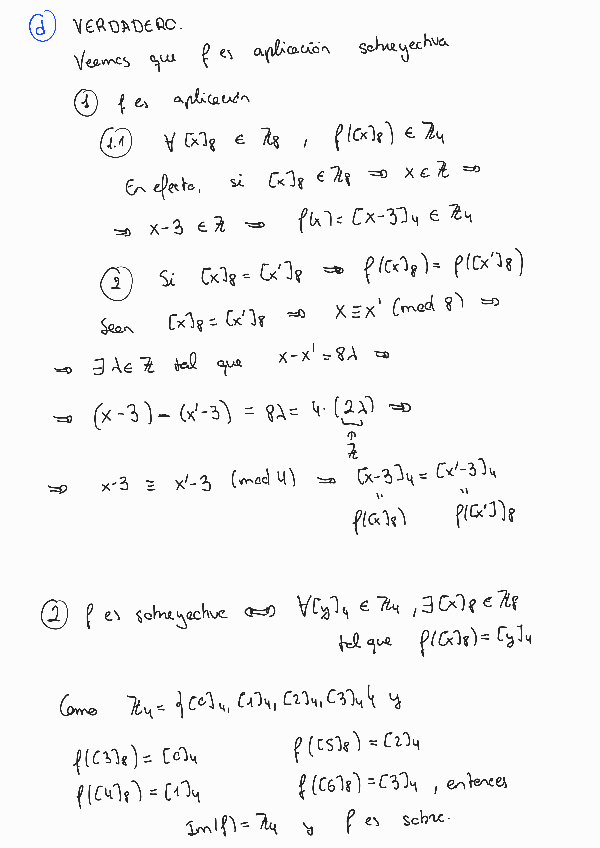 d VERDADERO.
Veemos que f es aplicación sobreyectiva
1 f es aplicación
1.1 ∀ [x]₈ ∈ ℤ₈ , f([x]₈) ∈ ℤ₄
En efecto, si [x]₈ ∈ ℤ₈ ⇒ x ∈ ℤ ⇒
⇒ x-3 ∈ ℤ ⇒ f(x) = [x-3]₄ ∈ ℤ₄
2 Si [x]₈ = [x']₈ ⇒ f([x]₈) = f([x']₈)
Sean [x]₈ = [x']₈ ⇒ x ≡ x' (mod 8) ⇒
⇒ ∃ λ ∈ ℤ tal que x-x' = 8λ ⇒
⇒ (x-3) - (x'-3) = 8λ = 4·(2λ) ⇒
ℤ
⇒ x-3 ≡ x'-3 (mod 4) ⇒ [x-3]₄ = [x'-3]₄
" "
f([x]₈) f([x'])₈
2 f es sobreyectiva ⇔ ∀[y]₄ ∈ ℤ₄ , ∃[x]₈ ∈ ℤ₈
tal que f([x]₈) = [y]₄
Como ℤ₄ = {[0]₄, [1]₄, [2]₄, [3]₄} y
f([3]₈) = [0]₄ f([5]₈) = [2]₄
f([4]₈) = [1]₄ f([6]₈) = [3]₄ , entonces
Im(f) = ℤ₄ y f es sobre.